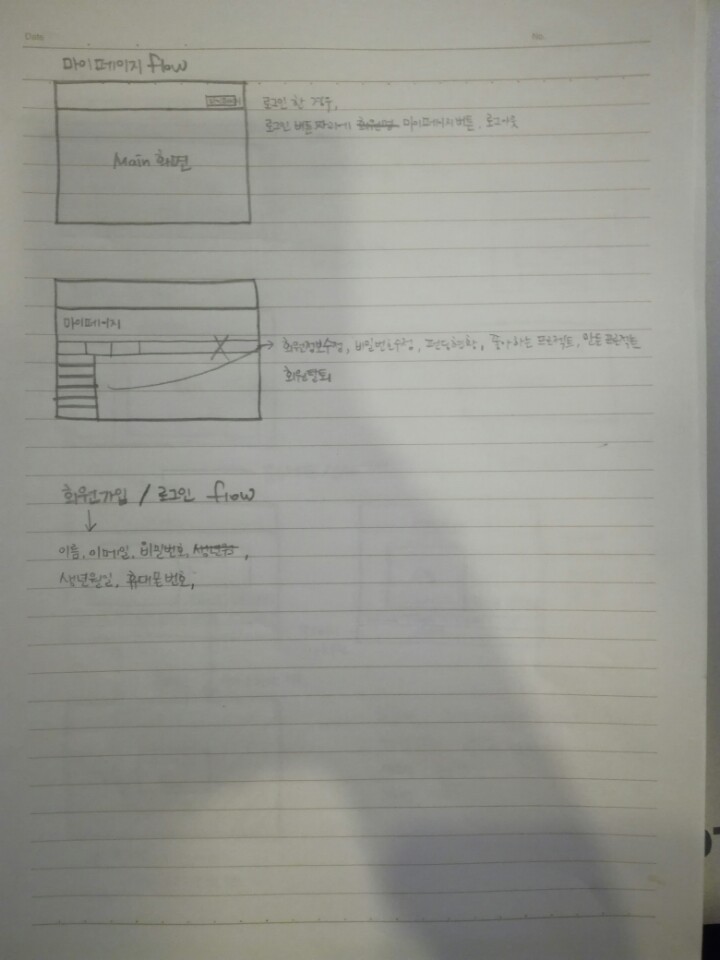 Date
No.
마이페이지 flow
로그인 한 경우,
로그인 버튼 자리에 회원정 마이페이지 버튼, 로그아웃
Main 화면
마이페이지
회원정보수정, 비밀번호수정, 펀딩현황, 좋아하는 프로젝트, 만든 프로젝트
회원탈퇴
회원가입 / 로그인 flow
이름, 이메일, 비밀번호, 생년월,
생년월일, 휴대폰번호,